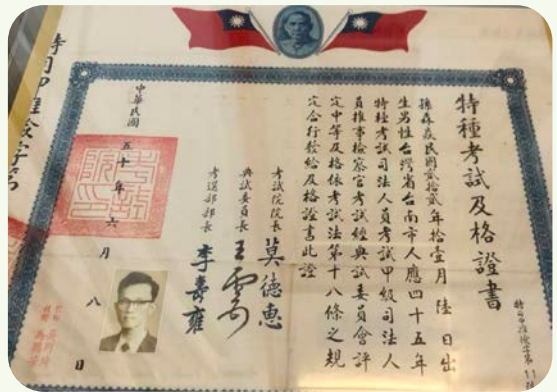 特種考試及格證書
孫森焱民國貳拾貳年拾壹月陸日出
生男性台灣省台南市人應四十五年
特種考試司法人員考試甲級司法人
員推事檢察官考試經典試委員會評
定中等及格依考試法第十八條之規
定合行發給及格證書此證
考試院院長莫德惠
典試委員長王雲五
考選部部長李壽雍
中華民國五十年六月八日
考試院印